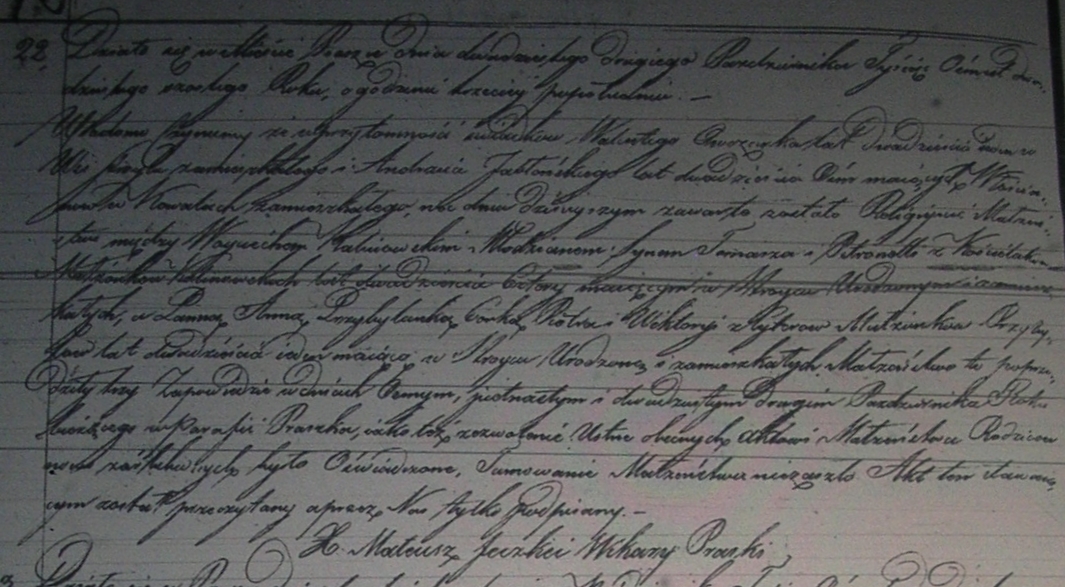 22. Działo się w Mieście Praszce dnia dwudziestego drugiego Października Tysiąc Ośmset dwu-
dziestego szostego Roku, o godzinie trzeciey popołudniu. —
Wiadomo czyniemy że w przytomności świadków Walentego lat dwadzieścia
Wsi zamieszkałego i Andrzeia Jabłońskiego lat dwadzieścia Ośm maiących
w Kowalach zamieszkałego, na dniu dzisieyszym zawarte zostało Religijne Małżeń-
stwo między Woyciechem Kaliniowskim Młodzianem Synem Tomasza i Petronelli z
Małżonków lat dwadzieścia Cztery maiącym w Stroycu Urodzonym i zamiesz-
kałych, a Panną Anną Przybylanką Corką Piotra i Wiktoryi z Małżonków Przyby-
łow lat dwadzieścia ieden maiącą, w Stroycu Urodzoną i zamieszkałych. Małżeństwo to poprze-
dziły trzy Zapowiedzie w dniach Osmym, piętnastym i dwudziestym drugim Października Roku
bieżącego w Parafii Praszka, iako też zezwolenie Ustne obecnych Aktowi Małżeństwa Rodziców
było Oświadczone, Tamowanie Małżeństwa nie zaszło. Akt ten stawaią-
cym został przeczytany a przez Nas tylko podpisany. —
X. Mateusz Wikary Praski